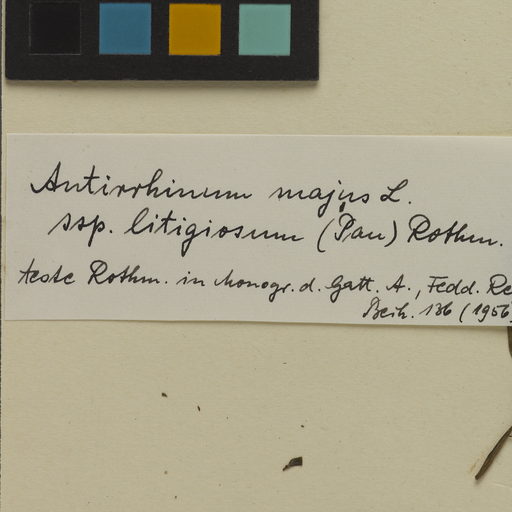 Antirrhinum majus L.
ssp. litigiosum (Pau) Rothm.
teste Rothm. in Monogr. d. Gatt. A., Fedd. Re
Beih. 136 (1956